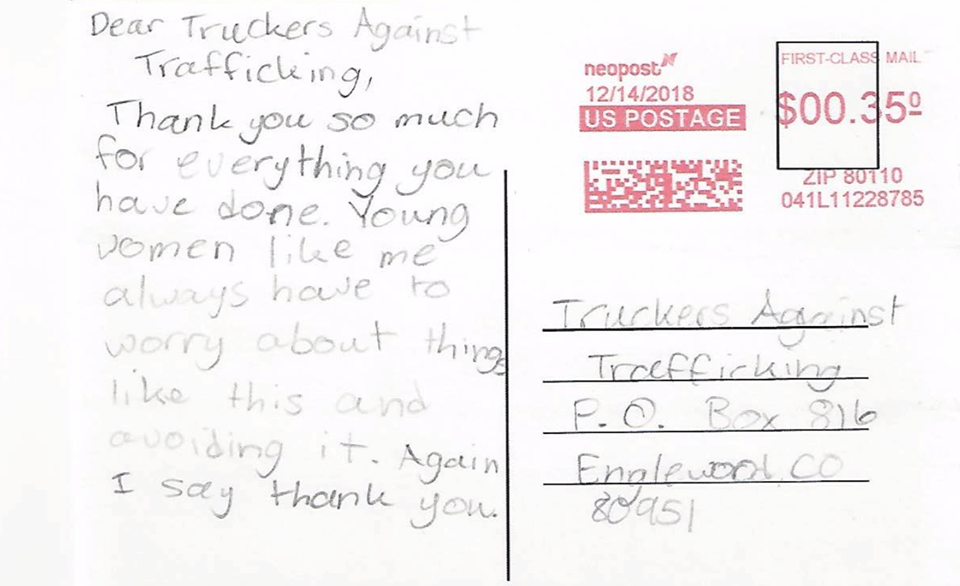 Dear Truckers Against
Trafficking,
Thank you so much
for everything you
have done. Young
women like me
always have to
worry about things
like this and
avoiding it. Again
I say thank you.
neopost
12/14/2018
US POSTAGE
FIRST-CLASS MAIL
$00.35⁰
ZIP 80110
041L11228785
Truckers Against
Trafficking
P.O. Box 816
Englewood, CO
80951